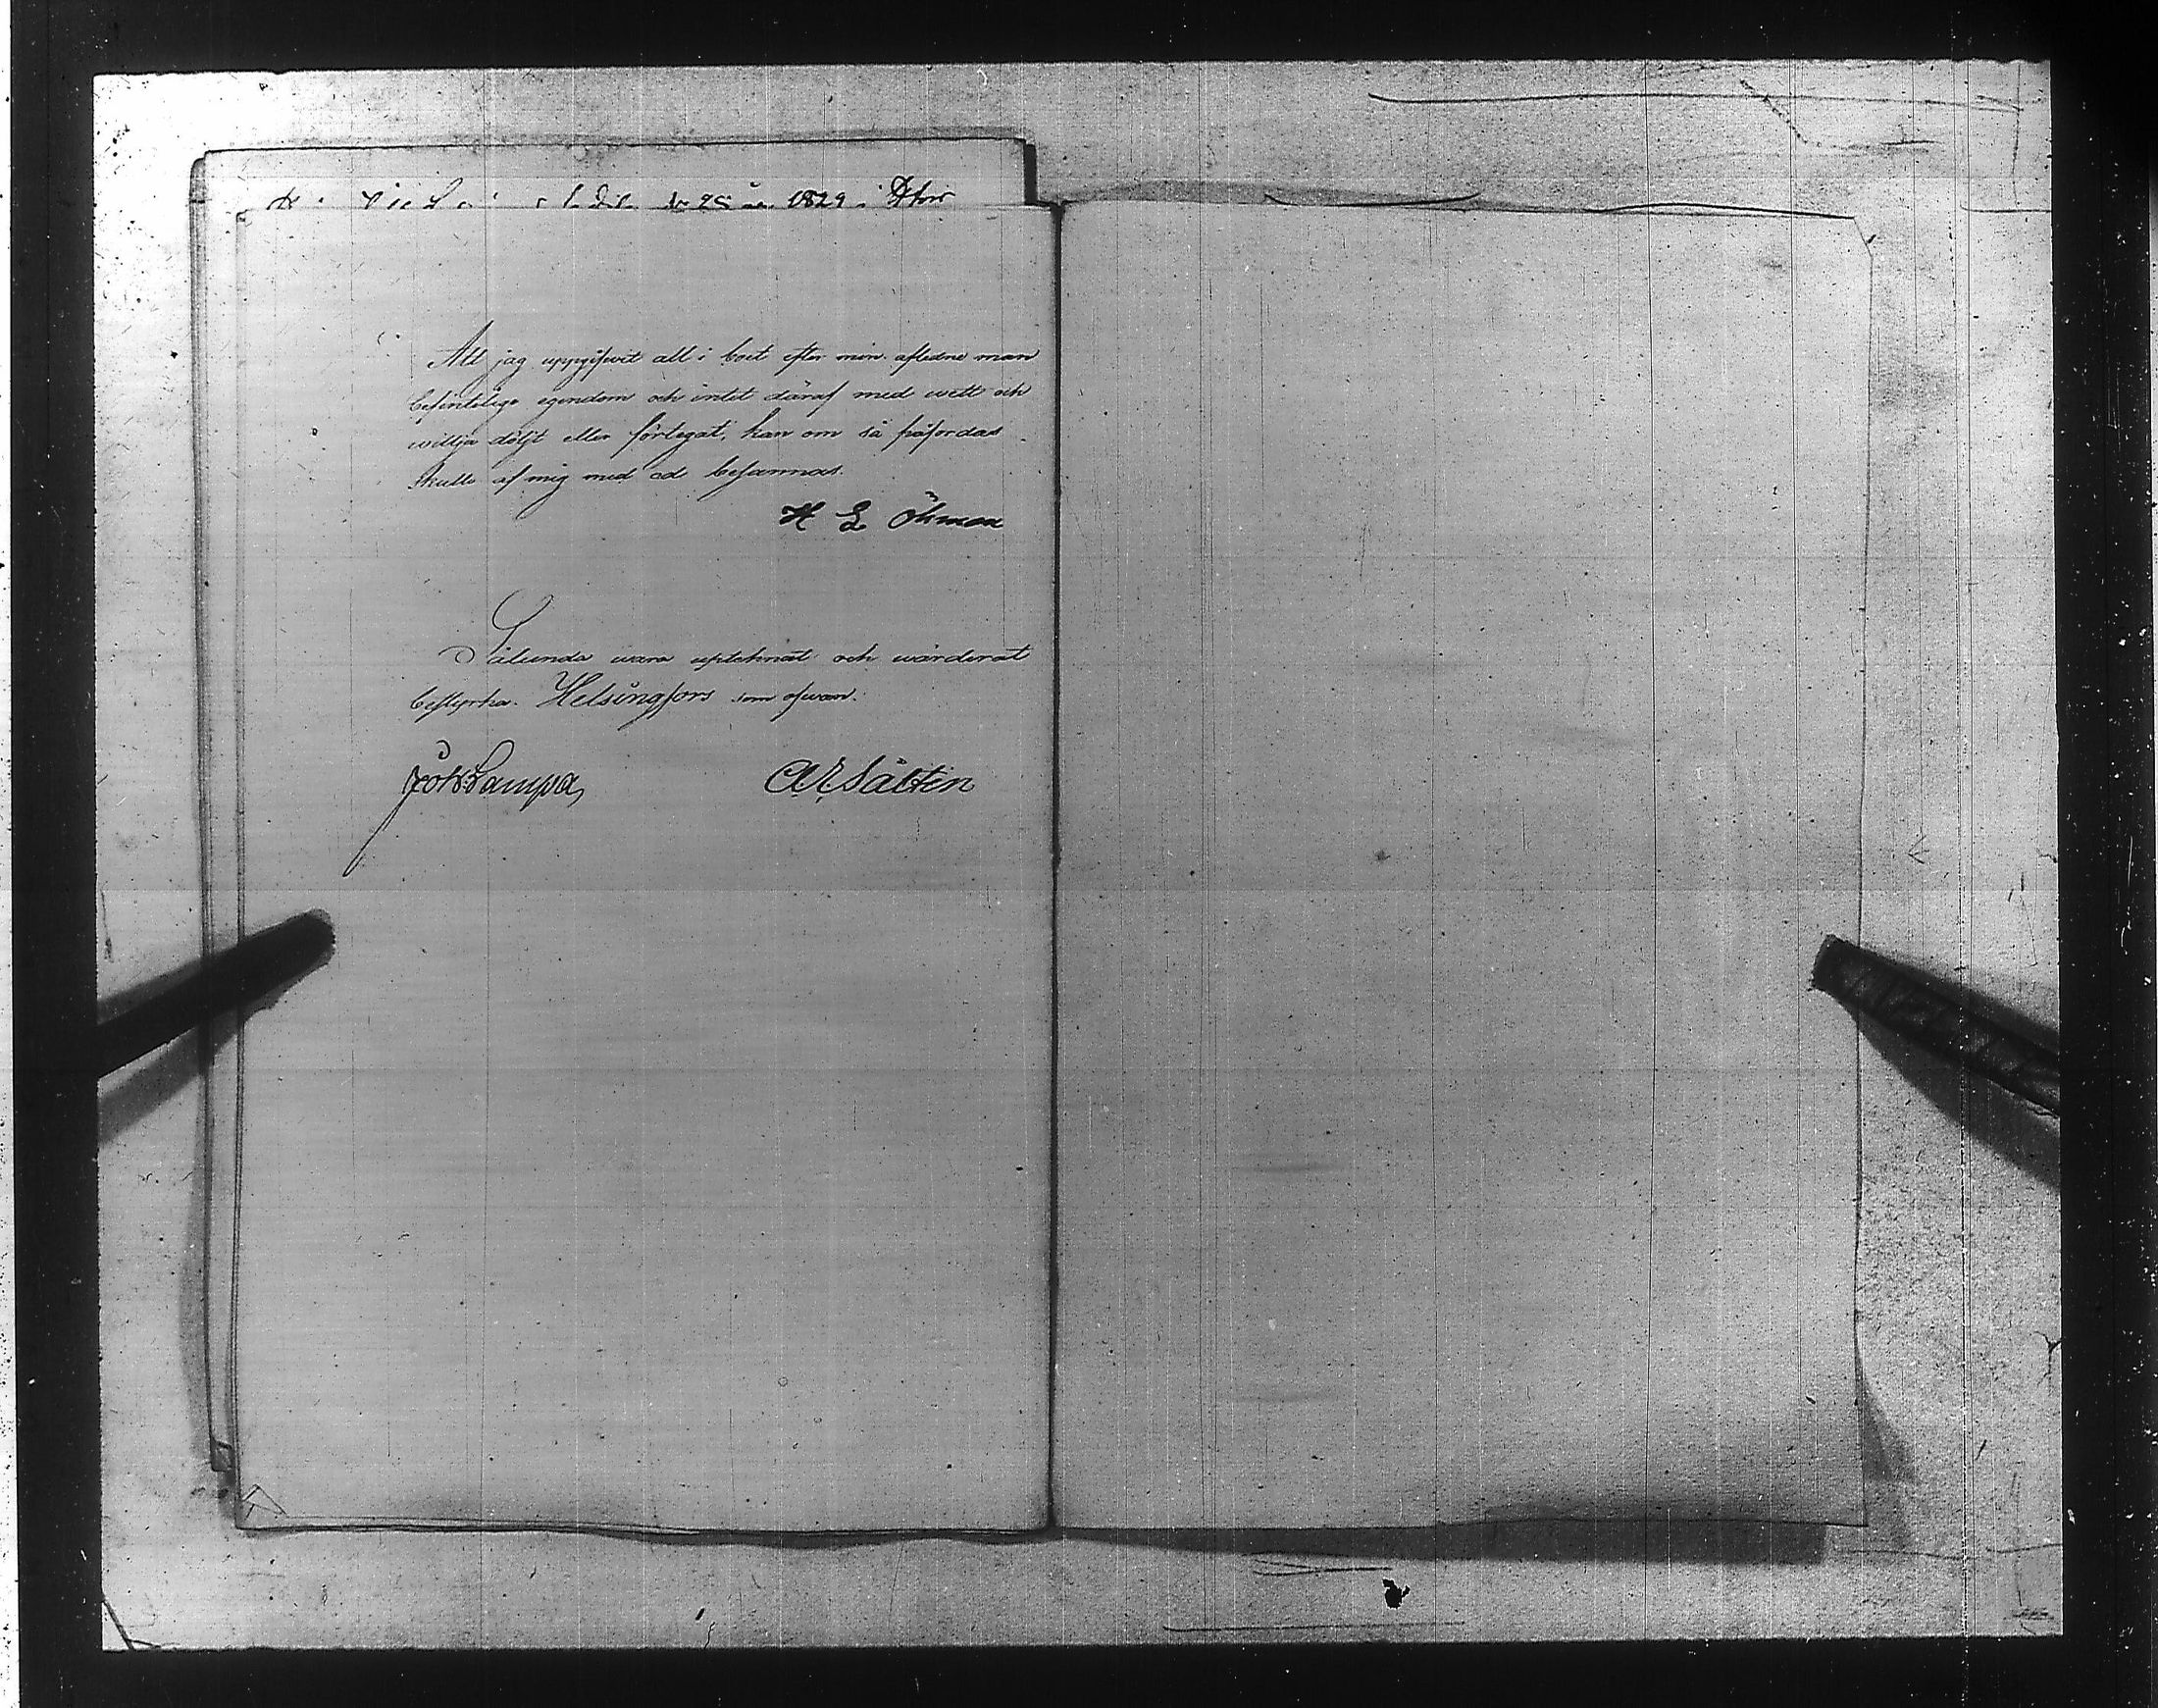 1829
Att jag uppgifwit allt i boet efter min aflidne man
befintelige egendom och intet däraf med wett och
willja döljt eller förtegat, kan om så påfordas
skulle af mig med ed besannas.
H E Öhman
Sålunda wara uptecknat och wärderat
bestyrka. Helsingfors som ofwan.
Lampa